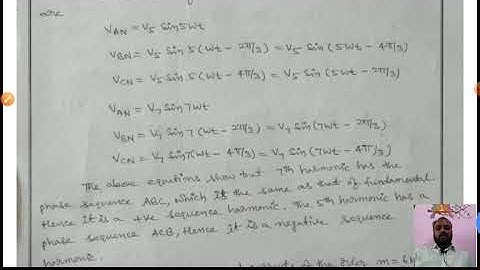 are
V_AN = V_5 Sin5wt
V_BN = V_5 Sin5(wt - 2π/3) = V_5 Sin(5wt - 4π/3)
V_CN = V_5 Sin5(wt - 4π/3) = V_5 Sin(5wt - 2π/3)
V_AN = V_7 Sin7wt
V_BN = V_7 Sin7(wt - 2π/3) = V_7 Sin(7wt - 2π/3)
V_CN = V_7 Sin7(wt - 4π/3) = V_7 Sin(7wt - 4π/3)
The above equtions show that 7th harmonic has the
phase sequence ABC, which is the same as that of fundamental
Hence it is a +ve sequence harmonic. The 5th harmonic has a
phase sequence ACB, Hence it is a negative sequence
harmonic.
of the order m = 6k